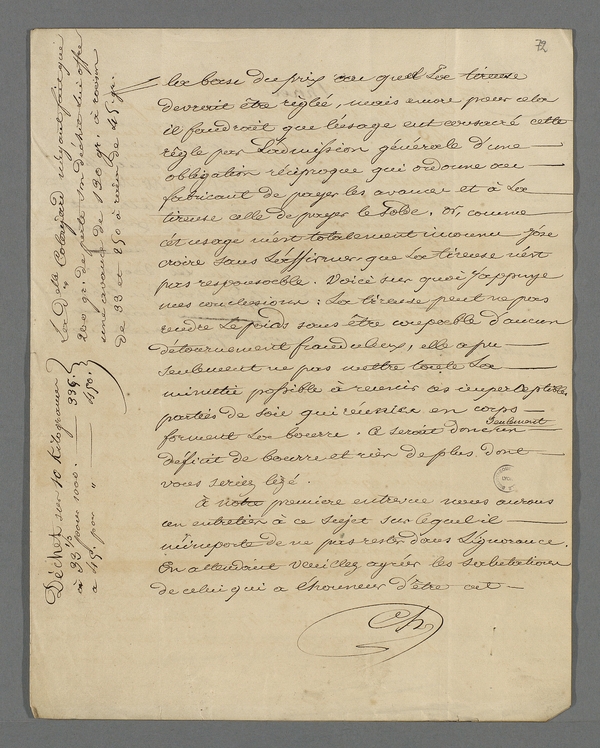 72
la base du prix au quel la tireuse
devrait être réglée, mais encore pour cela
il faudrait que l'usage eut consacré cette
règle par l'admission générale d'une
obligation réciproque qui ordonne au
fabricant de payer les avances et à la
tireuse celle de payer le solde. Or, comme
cet usage m'est totalement inconnu j'ose
croire sans l'affirmer que la tireuse n'est
pas responsable. Voici sur quoi j'appuye
mes conclusions : La tireuse peut ne pas
rendre le poids sans être coupable d'aucun
détournement frauduleux, elle a pu
seulement ne pas mettre toute la
minutie possible à réunir ces imperceptibles
parties de soie qui réunies en corps
forment la bourre. Ce serait donc un seulement
déficit de bourre et rien de plus dont
vous seriez lézé.
à notre première entrevue nous aurons
un entretien à ce sujet sur lequel il
m'importe de ne pas rester dans l'ignorance.
En attendant veuillez agréer les salutations
de celui qui a l'honneur d'être est
Ch
Déchet sur 10 Kilogrammes
à 33 1/3 pour 1000. 336.
à 45. pour " 450.
La Dlle Colayard n'ayant fait que
200 gr. de perte son déchet lui offre
une avance de 130 gr. à raison
de 33 et 250 à raison de 45 gr.